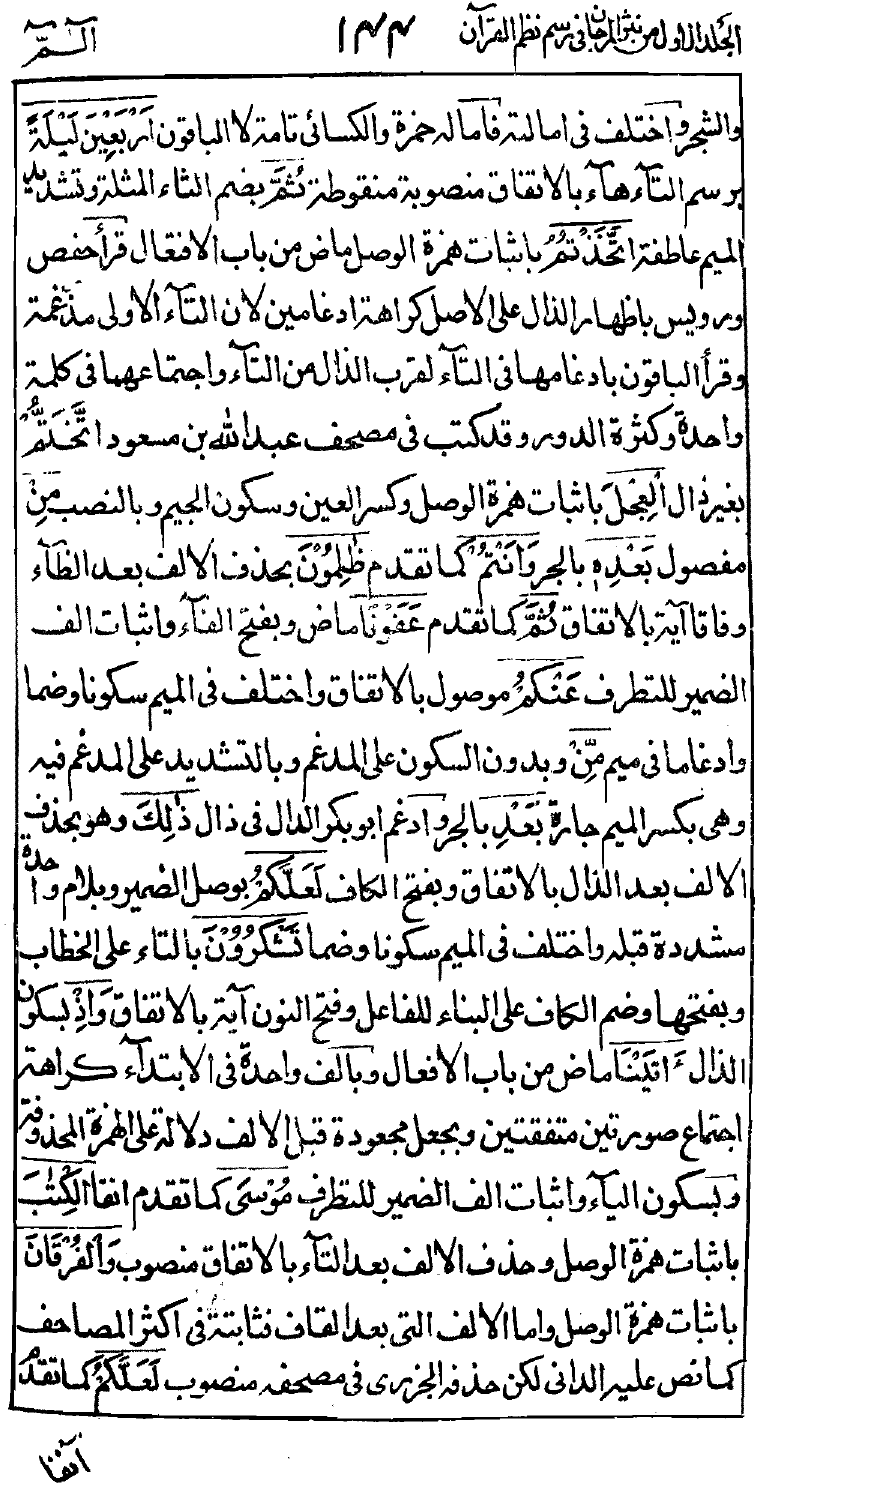 الجلد الاول من نثر المرجان فى رسم نظم القرآن ١٤٤ الٓمّٓ
والشجر واختلف فى امالته فاماله حمزة والكسائى تامة لا الباقون اَرْبَعِيْنَ لَيْلَةً
برسم التآء هآء بالاتفاق منصوبة منقوطة ثُمَّ بضم الثاء المثلثة وتشديد
الميم عاطفة اتَّخَذْتُمُ باثبات همزة الوصل ماض من باب الافتعال قرأ حفص
ورويس باظهار الذال على الاصل كراهة ادغامين لان التآء الاولى مدغمة
وقرأ الباقون بادغامها فى التآء لقرب الذال من التآء واجتماعهما فى كلمة
واحدة وكثرة الدور وقد كتب فى مصحف عبد الله بن مسعود اتَّخَتُّمُ
بغير ذال الْعِجْلَ باثبات همزة الوصل وكسر العين وسكون الجيم وبالنصب مِنْ
مفصول بَعْدِهٖ بالجر وَاَنْتُمْ كما تقدم ظٰلِمُوْنَ بحذف الالف بعد الظآء
وفاقا آية بالاتفاق ثُمَّ كما تقدم عَفَوْنَا ماض وبفتح الفآء واثبات الف
الضمير للتطرف عَنْكُمْ موصول بالاتفاق واختلف فى الميم سكونا وضما
وادغاما فى ميم مِّنْ وبدون السكون على المدغم وبالتشديد على المدغم فيه
وهى بكسر الميم جارة بَعْدِ بالجر وادغم ابو بكر الدال فى ذال ذٰلِكَ وهو بحذف
الالف بعد الذال بالاتفاق وبفتح الكاف لَعَلَّكُمْ بوصل الضمير وبلام واحدة
مشددة قبله واختلف فى الميم سكونا وضما تَشْكُرُوْنَ بالتاء على الخطاب
وبفتحها وضم الكاف على البناء للفاعل وفتح النون آية بالاتفاق وَاِذْ بسكون
الذال ءَاتَيْنَا ماض من باب الافعال وبالف واحدة فى الابتدآء كراهة
اجتماع صورتين متفقتين وبجعل مجعودة قبل الالف دلالة على الهمزة المحذوفة
وبسكون اليآء واثبات الف الضمير للتطرف مُوْسَى كما تقدم انفا الْكِتٰبَ
باثبات همزة الوصل وحذف الالف بعد التآء بالاتفاق منصوب وَالْفُرْقَانَ
باثبات همزة الوصل واما الالف التى بعد القاف فثابتة فى اكثر المصاحف
كما نص عليه الدانى لكن حذفه الجزرى فى مصحفه منصوب لَعَلَّكُمْ كما تقدم
آنفا